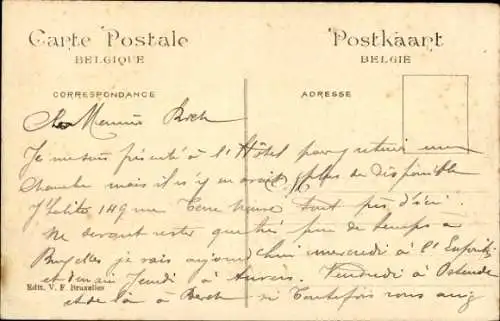 Carte Postale
BELGIQUE
Postkaart
BELGIË
CORRESPONDANCE
ADRESSE
Je me suis présenté à l'Hôtel pour retenir une
chambre mais il n'y en avait plus de disponible
J'habite 149 rue Terre Neuve tout près d'ici.
Ne devant rester que peu de temps à
Bruxelles je vais aujourd'hui mercredi à l'
et demain Jeudi à Anvers. Vendredi à Ostende
Edit. V. F. Bruxelles
et de là à Berck si toutefois vous